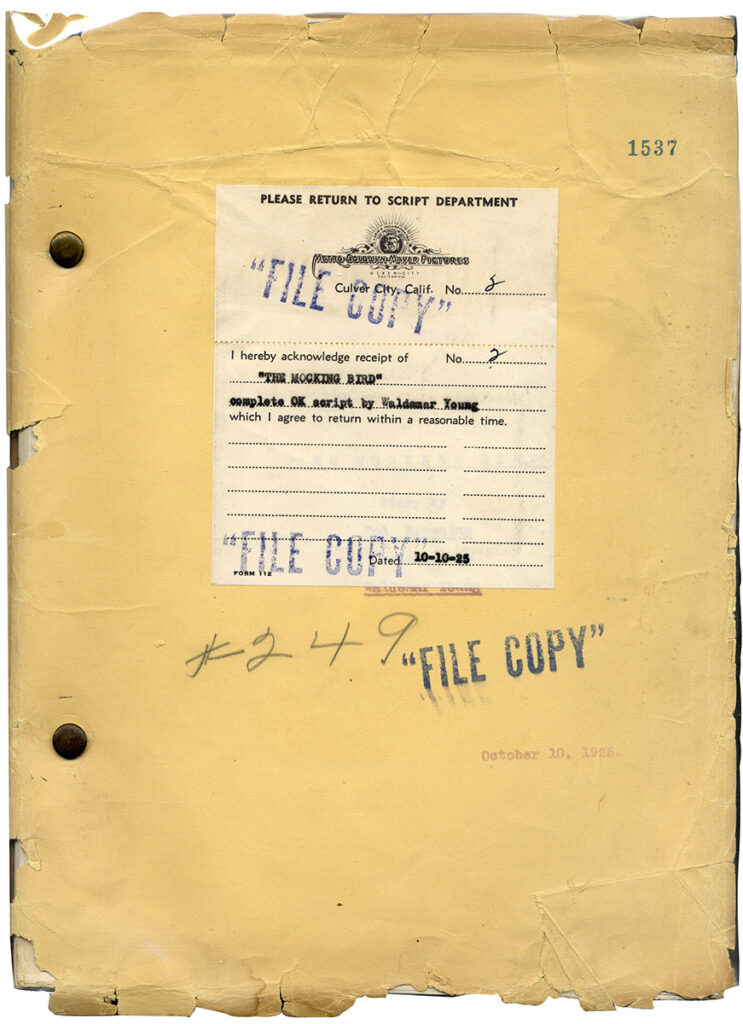 1537
PLEASE RETURN TO SCRIPT DEPARTMENT
METRO-GOLDWYN-MAYER PICTURES
CULVER CITY
CALIFORNIA
Culver City, Calif. No. 2
"FILE COPY"
I hereby acknowledge receipt of No. 2
"THE MOCKING BIRD"
complete OK script by Waldemar Young
which I agree to return within a reasonable time.
"FILE COPY"
Dated 10-10-25
FORM 112
#249
"FILE COPY"
October 10, 1925.